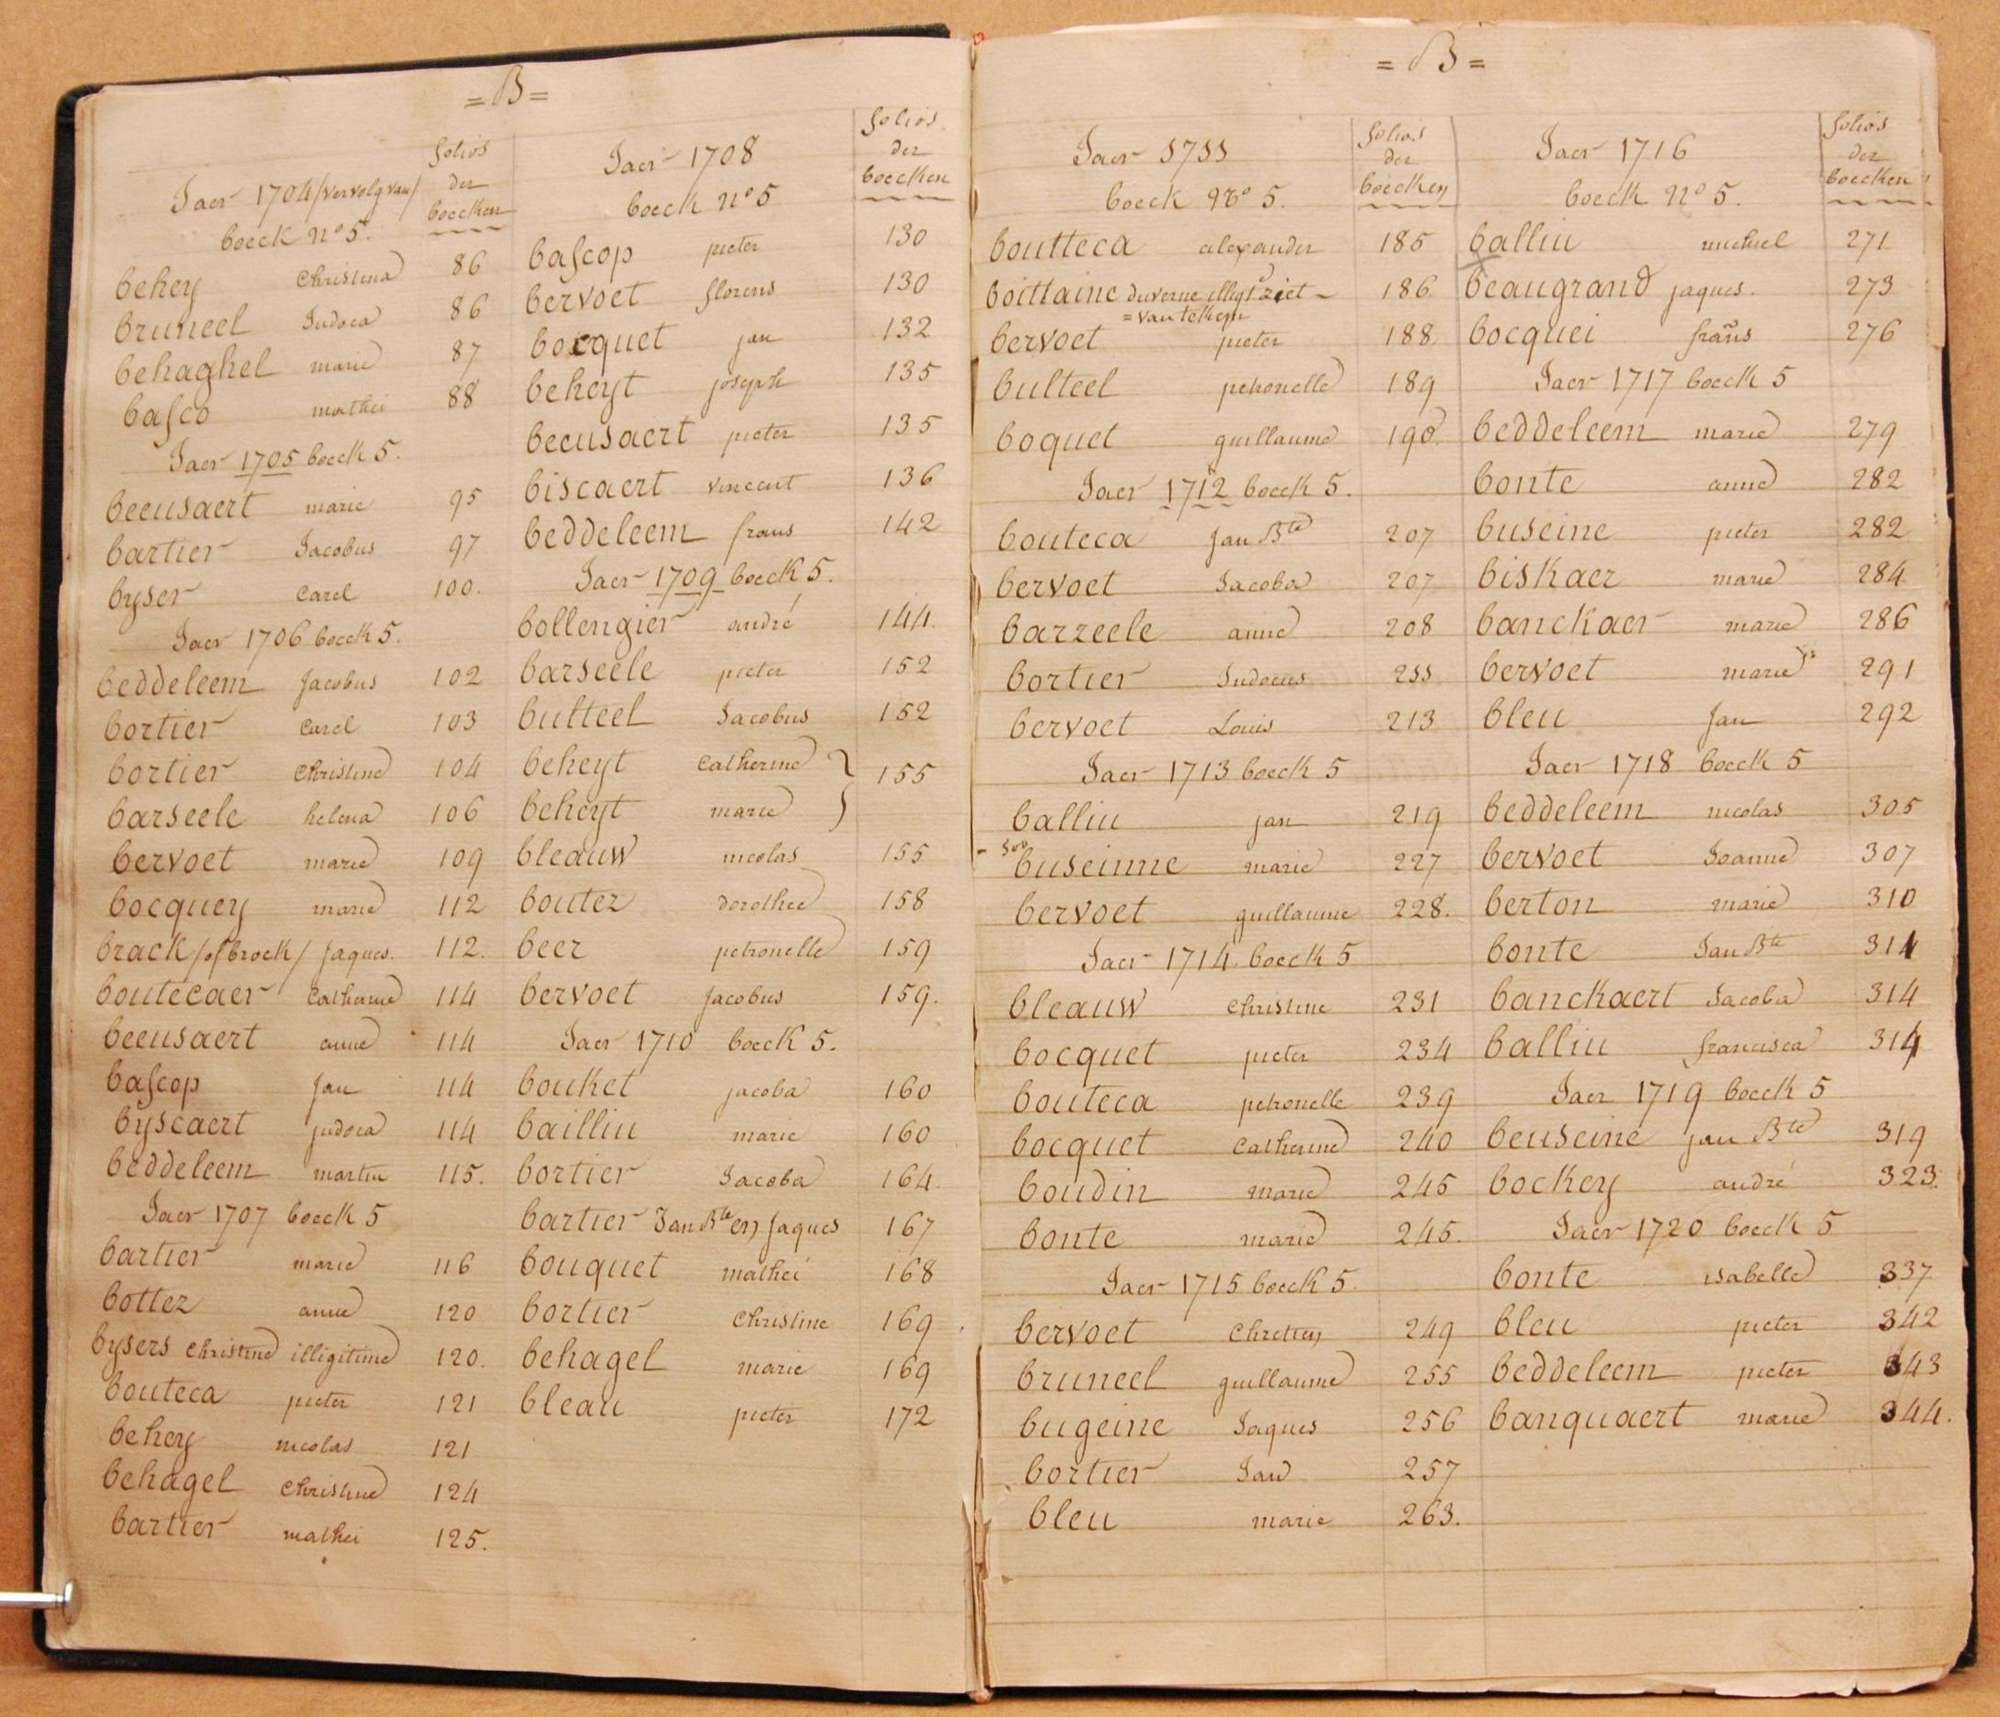 = B =
Jaer 1704 /vervolg van/
boeck N° 5.
folios
der
boecken
behey Christina 86
bruneel Judoca 86
behaghel marie 87
basco mathei 88
Jaer 1705 boeck 5.
beeusaert marie 95
bartier Jacobus 97
byser Carel 100.
Jaer 1706 boeck 5.
beddeleem Jacobus 102
bortier Carel 103
bortier Christine 104
barseele helena 106
bervoet marie 109
bocquey marie 112
brack /of brock/ Jaques. 112.
boutecaer Catherine 114
beeusaert anne 114
bascop Jan 114
byscaert judoca 114
beddeleem martin 115.
Jaer 1707 boeck 5
bartier marie 116
bottez anne 120
bysers Christine illigitime 120.
bouteca pieter 121
behey nicolas 121
behagel Christine 124
bartier mathei 125.
Jaer 1708
boeck N° 5
folios
der
boecken
bascop pieter 130
bervoet florens 130
bocquet jan 132
beheyt joseph 135
beeusaert pieter 135
biscaert vincent 136
beddeleem frans 142
Jaer 1709 boeck 5.
bollengier andré 144.
barseele pieter 152
bulteel Jacobus 152
beheyt Catherine } 155
beheyt marie }
bleauw nicolas 155
boutez dorothee 158
beer petronelle 159
bervoet Jacobus 159.
Jaer 1710 boeck 5.
bouket jacoba 160
bailliu marie 160
bortier Jacoba 164.
bartier Jan Bte en Jaques 167
bouquet mathei 168
bortier Christine 169
behagel marie 169
bleau pieter 172
= B =
Jaer 1711
boeck N° 5.
folios
der
boecken
boutteca alexander 185
boittaine duverne illigt ziet - 186
= van tekem
bervoet pieter 188
bulteel petronelle 189
boquet guillaume 190.
Jaer 1712 boeck 5.
bouteca Jan Bte 207
bervoet Jacoba 207
barzeele anne 208
bortier Judocus 211
bervoet Louis 213
Jaer 1713 boeck 5
balliu jan 219
buseinne marie 227
bervoet guillaume 228.
Jaer 1714 boeck 5
bleauw Christine 231
bocquet pieter 234
bouteca petronelle 239
bocquet Catherine 240
boudin marie 245
bonte marie 245.
Jaer 1715 boeck 5.
bervoet Chretien 249
bruneel guillaume 255
bugeine Jaques 256
bortier Jan 257
bleu marie 263.
Jaer 1716
boeck N° 5.
folios
der
boecken
balliu michiel 271
beaugrand jaques. 273
bocquei frans 276
Jaer 1717 boeck 5
beddeleem marie 279
bonte anne 282
buseine pieter 282
biskaer marie 284
banckaer marie 286
bervoet marie 291
bleu Jan 292
Jaer 1718 boeck 5
beddeleem nicolas 305
bervoet Joanne 307
berton marie 310
bonte Jan Bte 311
banckaert Jacoba 314
balliu francisca 314
Jaer 1719 boeck 5
beuseine jan Bte 319
bockey andré 323.
Jaer 1720 boeck 5
bonte isabelle 337
bleu pieter 342
beddeleem pieter 343
banquaert marie 344.